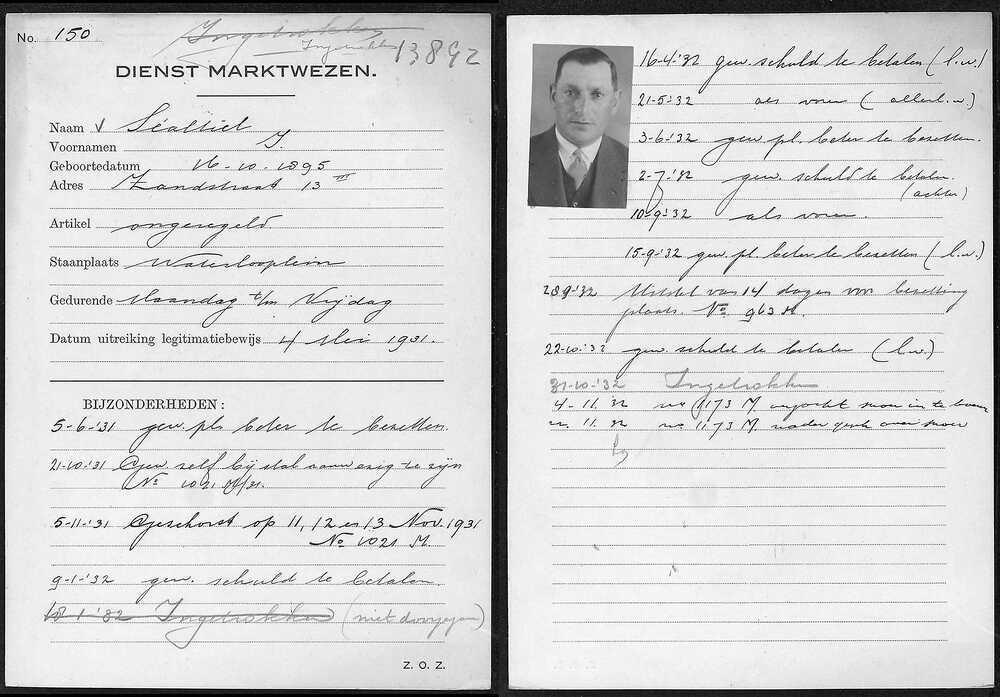 No. 150
Ingetrokken
Ingetrokken 13892
DIENST MARKTWEZEN.
Naam v Sealtiel
Voornamen J.
Geboortedatum 16-10-1895
Adres Zandstraat 13 III
Artikel ongeregeld.
Staanplaats Waterlooplein
Gedurende Maandag t/m Vrijdag
Datum uitreiking legitimatiebewijs 4 Mei 1931.
BIJZONDERHEDEN:
5-6-'31 gew. pls beter te bezetten.
21-10-'31 Gew. self bij stal aanwezig te zijn
No 1021 M/31.
5-11-'31 Geschorst op 11, 12 en 13 Nov. 1931
No 1021 M.
9-1-'32 gew. schuld te betalen.
18-1-'32 Ingetrokken (niet doorgegaan)
Z. O. Z.
16-4-'32 gew. schuld te betalen (l.w.)
21-5-'32 als voren (allerl.w.)
3-6-'32 gew. pl. beter te bezetten.
2-7-'32 gew. schuld te betalen.
(achter)
10-9-'32 als voren.
15-9-'32 gew. pl. beter te bezetten (l.w.)
28-9-'32 Uitstel van 14 dagen voor bezetting
plaats. No 963 M.
22-10-'32 gew. schuld te betalen (l.w.)
31-10-'32 Ingetrokken
4-11-'32 no 1173 M. in te
11-'32 no 1173 M. nader over